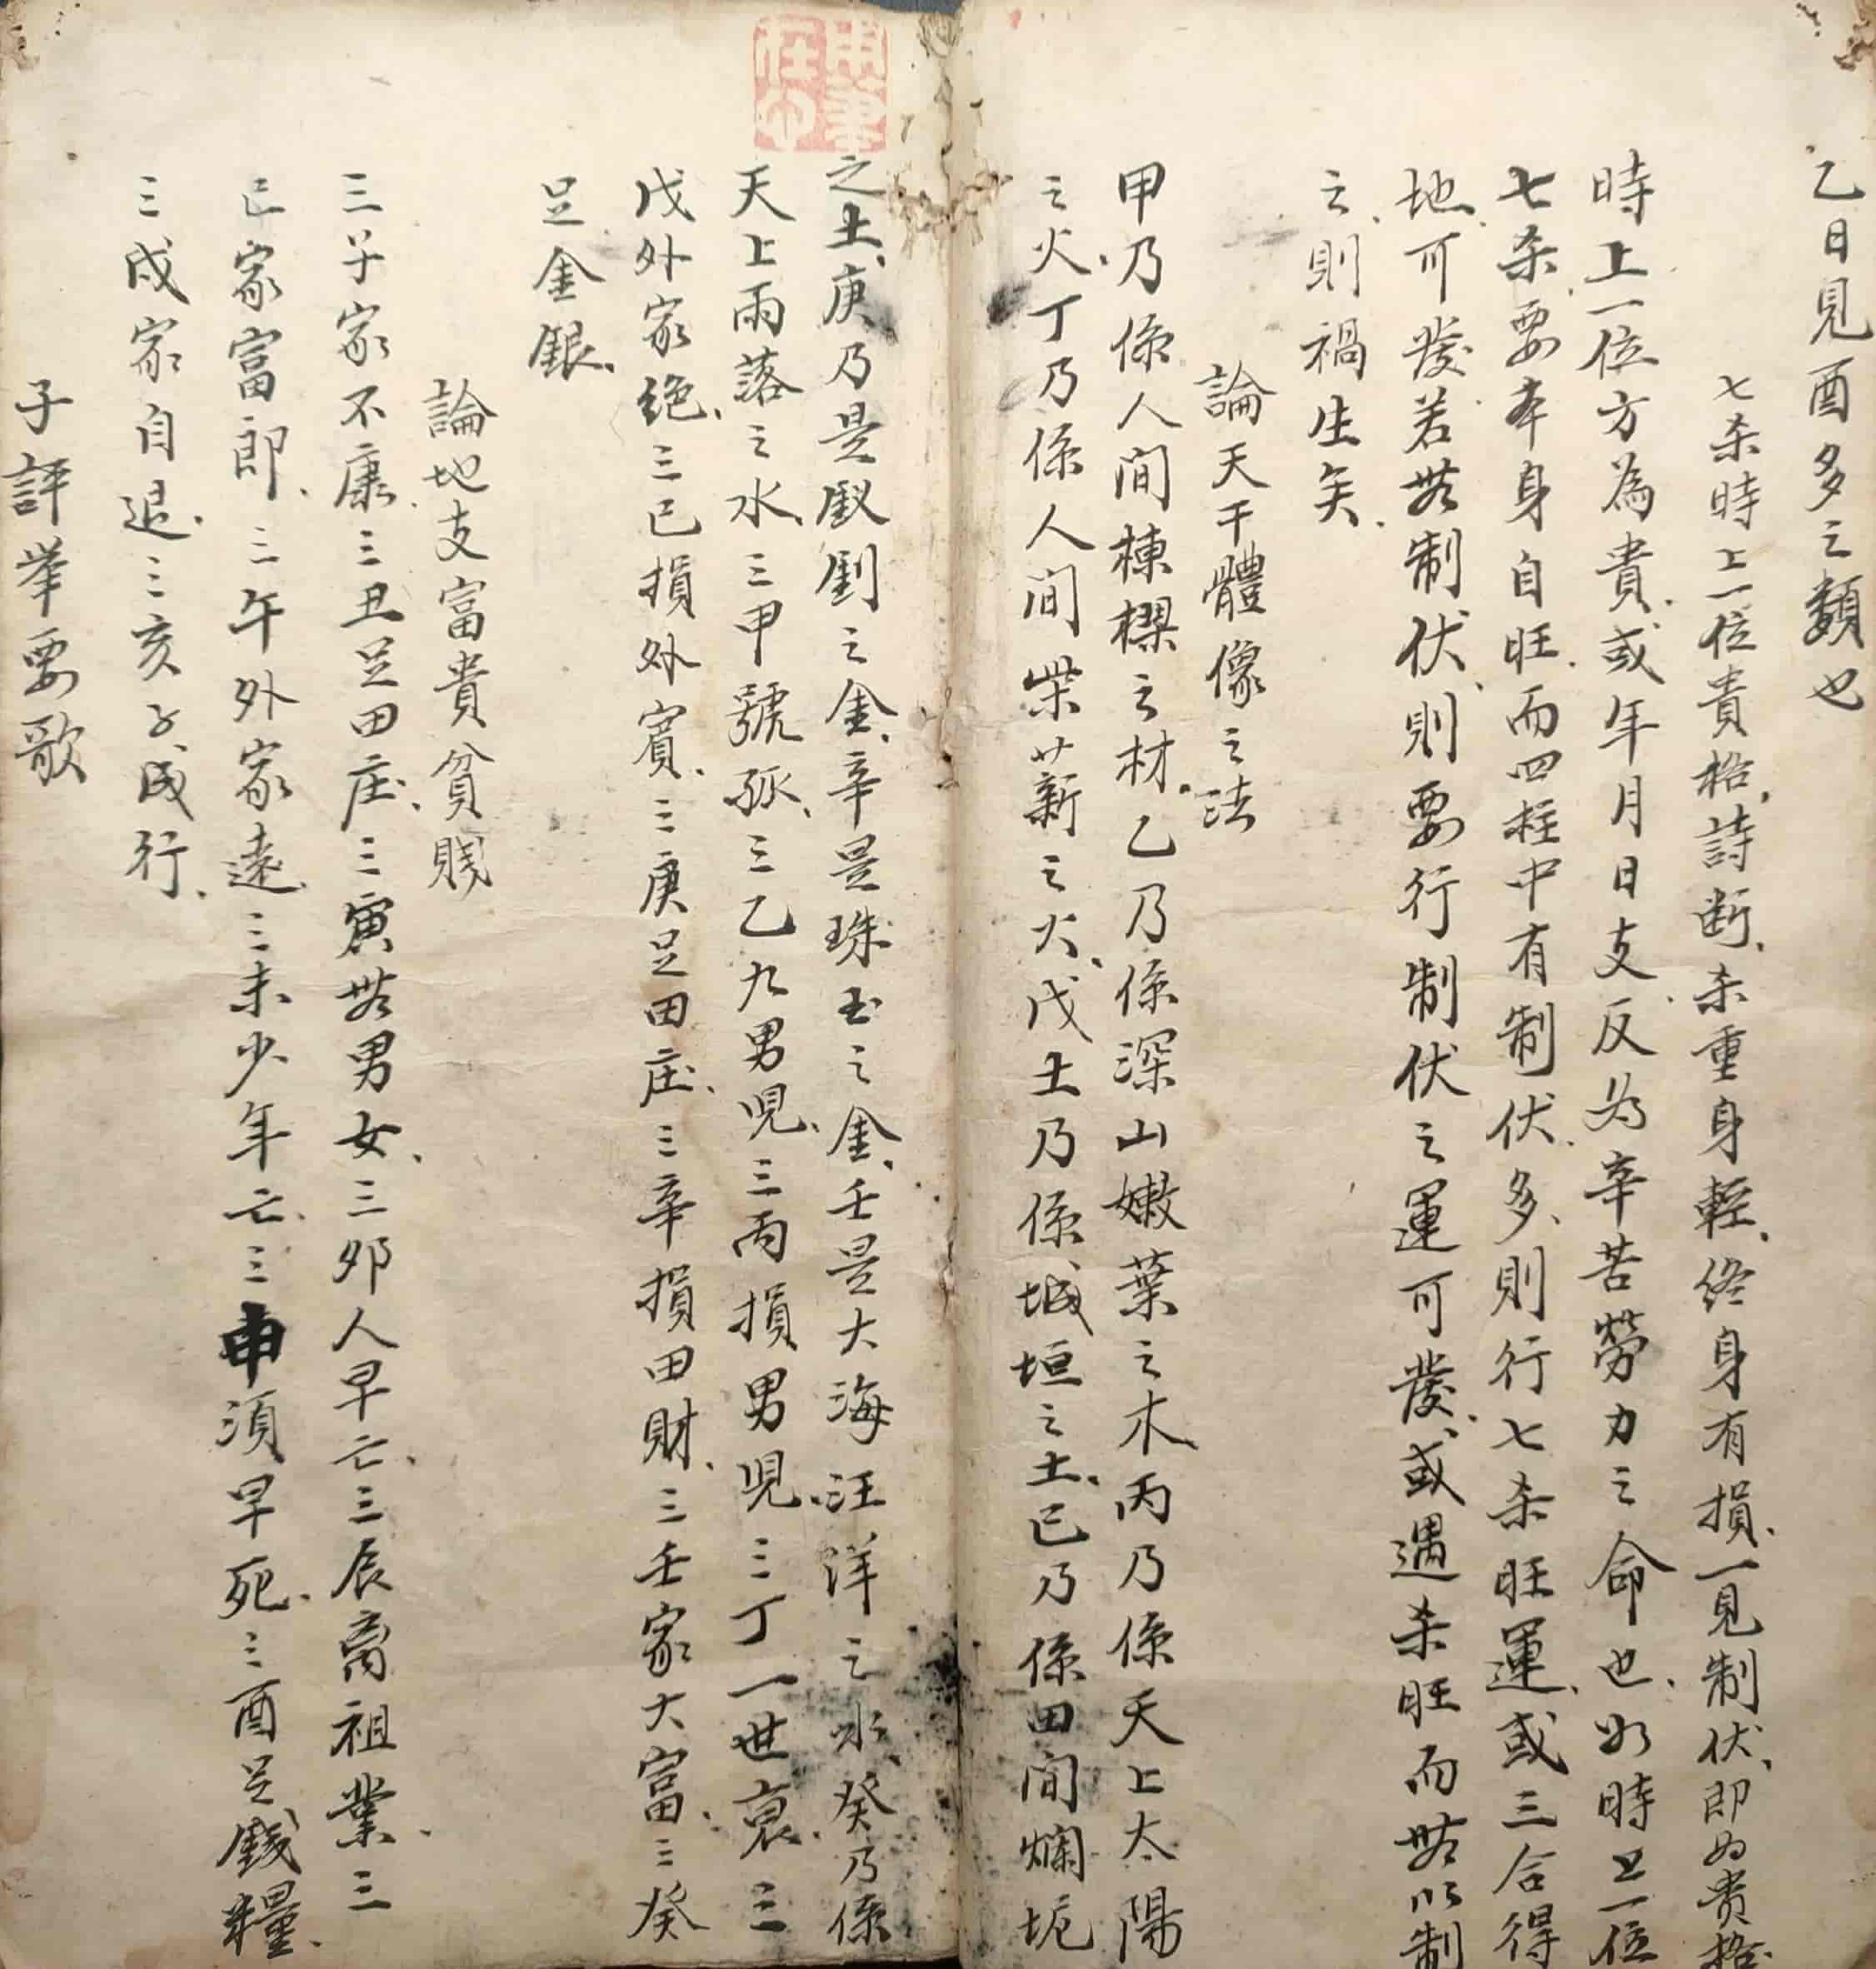 乙日見酉多之類也
七杀時上一位貴格詩断杀重身輕終身有損一見制伏即为贵格
時上一位方為貴或年月日支反为辛苦勞力之命也如時上一位
七杀要本身自旺而四柱中有制伏多則行七杀旺運或三合得
地可發若無制伏則要行制伏之運可發或遇杀旺而無以制
之則禍生矣
論天干體像之法
甲乃係人间棟樑之材乙乃係深山嫩葉之木丙乃係天上太陽
之火丁乃係人间柴薪之火戊土乃係城垣之土己乃係田间爛坭
之土庚乃是釵釧之金辛是珠玉之金壬是大海汪洋之水癸乃係
天上雨落之水三甲號孤三乙九男児三丙損男児三丁一世哀三
戊外家绝三己損外賓三庚足田庄三辛損田財三壬家大富三癸
足金銀
論地支富貴貧賤
三子家不康三丑足田庄三寅無男女三夘人早亡三辰离祖業三
巳家富郎三午外家遠三未少年亡三申須早死三酉足錢糧
三戌家自退三亥子成行
子評举要歌